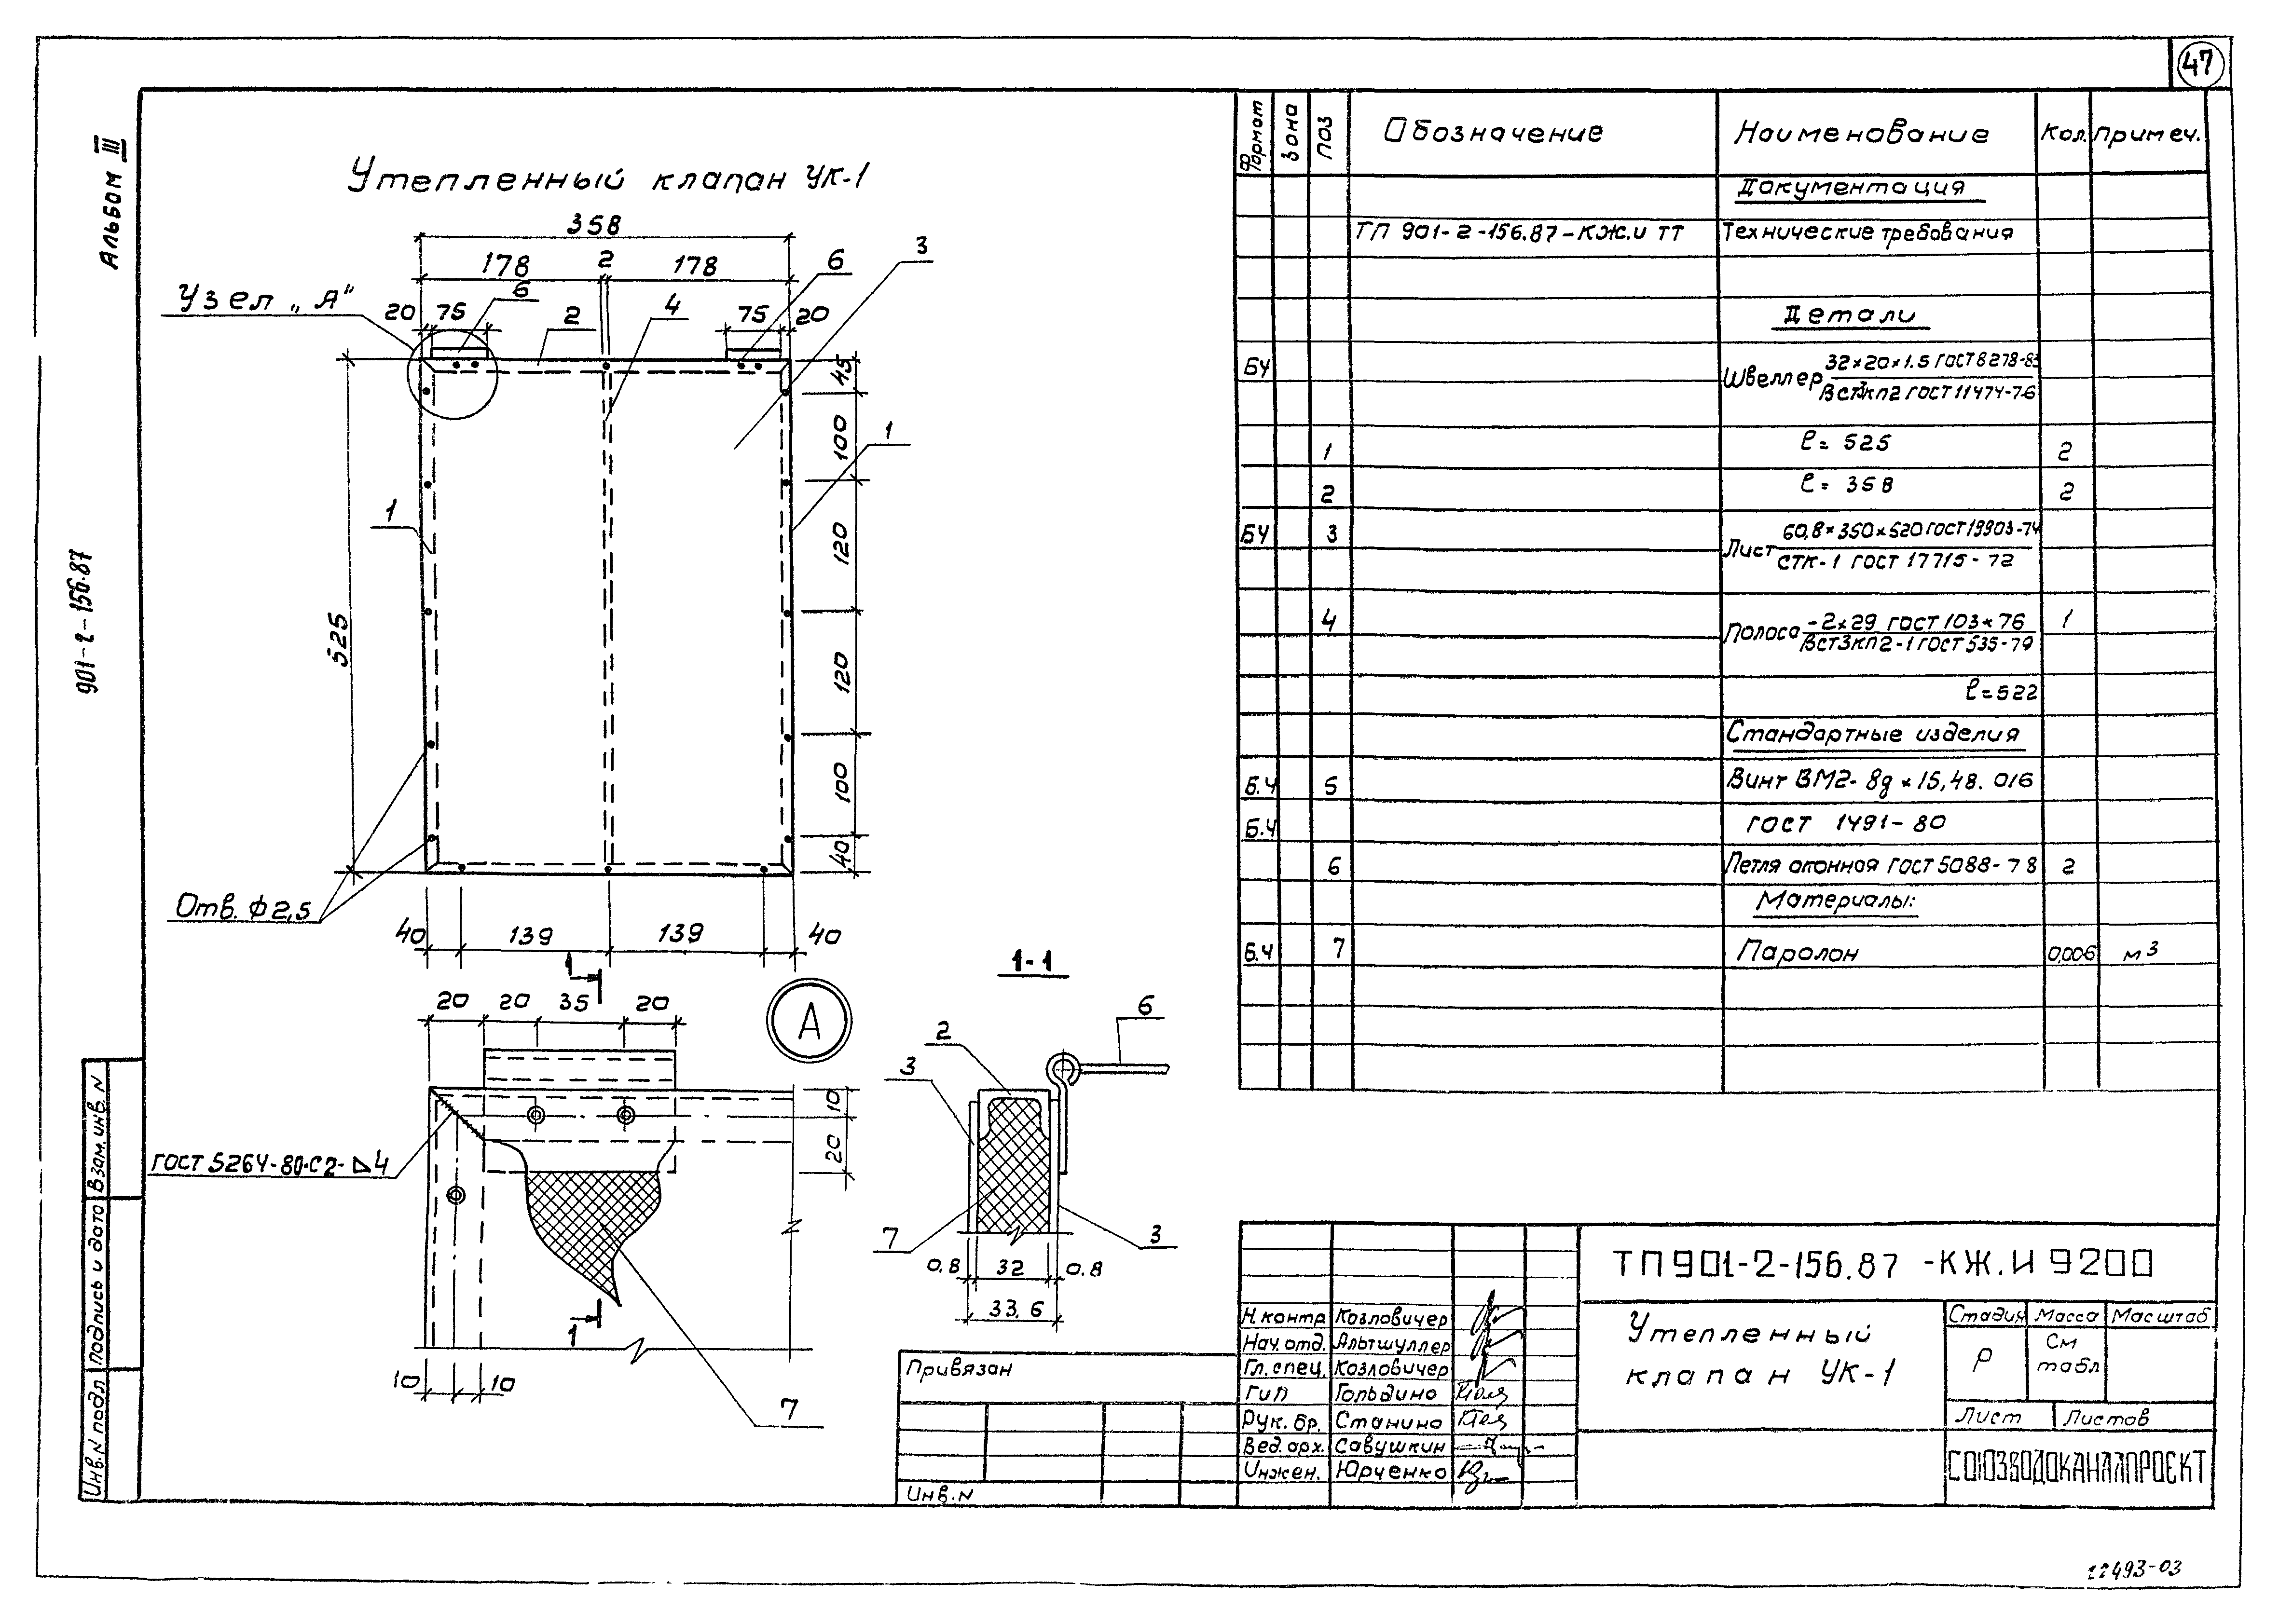 47
Альбом III
901-2-156.87
Утепленный клапан УК-1
358
178 2 178
Узел „А“
20 75 6 2 4 75 20 6 3
45
100
120
120
100
40
525
1
1
Отв. ф 2,5
40 139 139 40
1
20 20 35 20
А
10
20
ГОСТ 5264-80-С2-⊿4
10 10
1
7
1-1
6
2
3
7
3
0.8 32 0.8
33.6
Формат Зона Поз Обозначение Наименование Кол. Примеч.
Документация
ТП 901-2-156.87-КЖ.И ТТ Технические требования
Детали
БЧ Швеллер 32×20×1.5 ГОСТ 8278-83
ВСт3кп2 ГОСТ 11474-76
1 ℓ= 525 2
2 ℓ= 358 2
БЧ 3 Лист 60,8×350×520 ГОСТ 19903-74
СТК-1 ГОСТ 17715-72
4 Полоса -2×29 ГОСТ 103×76 1
ВСт3кп2-1 ГОСТ 535-79
ℓ=522
Стандартные изделия
Б.Ч 5 Винт ВМ2-8g×15,48.016
Б.Ч ГОСТ 1491-80
6 Петля оконная ГОСТ 5088-78 2
Материалы:
Б.Ч 7 Паролон 0,006 м3
ТП 901-2-156.87 -КЖ.И 9200
Н.контр Козловичер
Нач.отд. Альтшуллер
Гл.спец. Козловичер
ГИП Гольдина
Рук.бр. Станина
Вед.арх. Савушкин
Инжен. Юрченко
Утепленный
клапан УК-1
Стадия Масса Масштаб
Р См
табл
Лист Листов
СОЮЗВОДОКАНАЛПРОЕКТ
Привязан
Инв.N
Инв.N подл Подпись и дата Взам.инв.N
22493-03